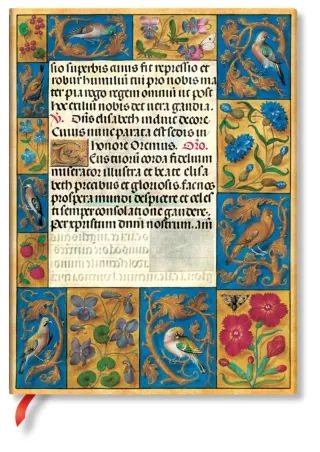 sio superbis fit repressio et
robur humiliu cui pio nobis ma
ter pia rego regem omniu ut post
hoc exiliu nobis det vera gaudia.
V. Dus elisabeth induit decore.
Cuius nunc parata est sedis in
honore Oremus. Oro.
corda fidelium
miserator illustra et beate elisa
beth precibus et gloriosis. fac nos
prospera mundi despicere et celes
ti semper consolatione gaudere.
Per xpristum dnm nostrum. Am